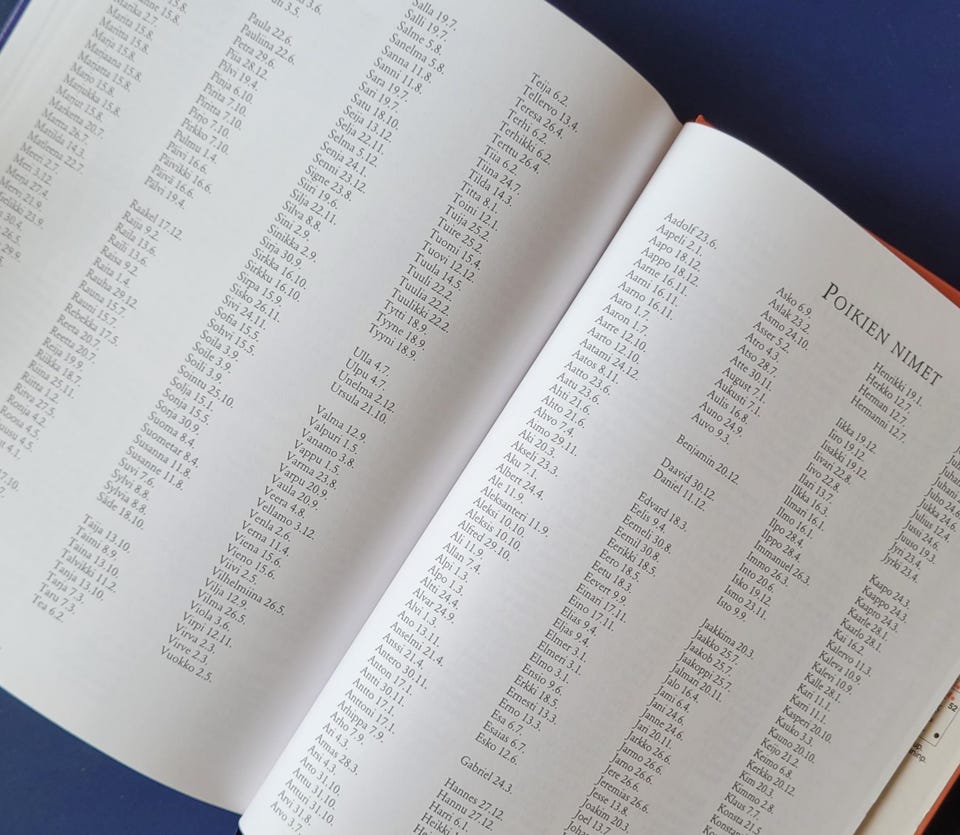 Marika 2.7.
Marita 15.8.
Maritta 15.8.
Marja 15.8.
Marjaana 15.8.
Marjatta 15.8.
Marjo 15.8.
Marjukka 15.8.
Marjut 15.8.
Marketta 20.7.
Martta 26.5.
Matilda 14.3.
Matleena 22.7.
Meeri 2.7.
Meri 3.12.
Merja 27.4.
Mervi 21.9.
Mielikki 23.9.
30.4.
26.5.
29.9.
3.6.
3.5.
Paula 22.6.
Pauliina 22.6.
Petra 29.6.
Piia 28.12.
Pilvi 19.4.
Pinja 6.10.
Pirita 7.10.
Piritta 7.10.
Pirjo 7.10.
Pirkko 7.10.
Pulmu 1.4.
Päivi 16.6.
Päivikki 16.6.
Päivä 16.6.
Pälvi 19.4.
Raakel 17.12.
Raija 9.2.
Raila 13.6.
Raili 13.6.
Raisa 9.2.
Raita 1.4.
Rauha 29.12.
Rauna 15.7.
Rauni 15.7.
Rebekka 17.5.
Reeta 20.7.
Reetta 20.7.
Reija 19.9.
Riikka 18.7.
Riitta 25.11.
Ritva 27.5.
Ronja 4.12.
Roosa 4.5.
Salla 19.7.
Salli 19.7.
Salme 5.8.
Sanelma 5.8.
Sanna 11.8.
Sanni 11.8.
Sara 19.7.
Sari 19.7.
Satu 18.10.
Seija 13.12.
Selja 22.11.
Selma 5.12.
Senja 24.1.
Senni 23.12.
Signe 23.8.
Siiri 19.6.
Silja 22.11.
Silva 8.8.
Sini 2.9.
Sinikka 2.9.
Sirja 30.9.
Sirkka 16.10.
Sirkku 16.10.
Sirpa 15.9.
Sisko 26.11.
Sivi 24.11.
Sofia 15.5.
Sohvi 15.5.
Soila 3.9.
Soile 3.9.
Soili 3.9.
Sointu 25.10.
Solja 15.1.
Sonja 15.5.
Sorja 30.9.
Suoma 8.4.
Suometar 8.4.
Susanna 11.8.
Susanne 11.8.
Suvi 7.6.
Sylvi 8.8.
Sylvia 8.8.
Säde 18.10.
Taija 13.10.
Taimi 8.9.
Taina 13.10.
Talvikki 11.2.
Tanja 13.10.
Tarja 7.3.
Taru 7.3.
Tea 6.2.
Teija 6.2.
Tellervo 13.4.
Teresa 26.4.
Terhi 6.2.
Terhikki 6.2.
Terttu 26.4.
Tiia 6.2.
Tiina 24.7.
Tilda 14.3.
Titta 8.1.
Toini 12.1.
Tuija 25.2.
Tuire 25.2.
Tuomi 15.4.
Tuovi 12.12.
Tuula 14.5.
Tuuli 22.2.
Tuulia 22.2.
Tuulikki 22.2.
Tytti 18.9.
Tyyne 18.9.
Tyyni 18.9.
Ulla 4.7.
Ulpu 4.7.
Unelma 2.12.
Ursula 21.10.
Valma 12.9.
Valpuri 1.5.
Vanamo 3.8.
Vappu 1.5.
Varma 23.8.
Varpu 20.9.
Vaula 20.9.
Veera 4.8.
Vellamo 3.12.
Venla 2.6.
Verna 11.4.
Viena 15.6.
Vieno 15.6.
Viivi 2.5.
Vilhelmiina 26.5.
Vilja 12.9.
Vilma 26.5.
Viola 3.6.
Virpi 12.11.
Virva 2.3.
Virve 2.3.
Vuokko 2.5.
POIKIEN NIMET
Aadolf 23.6.
Aapeli 2.1.
Aapo 18.12.
Aappo 18.12.
Aarne 16.11.
Aarni 16.11.
Aarno 16.11.
Aaro 1.7.
Aaron 1.7.
Aarre 12.10.
Aarto 12.10.
Aatami 24.12.
Aatos 8.11.
Aatto 23.6.
Aatu 23.6.
Ahti 21.6.
Ahto 21.6.
Ahvo 7.4.
Aimo 29.11.
Aki 20.3.
Akseli 23.3.
Aku 7.1.
Albert 24.4.
Ale 11.9.
Aleksanteri 11.9.
Aleksi 10.10.
Aleksis 10.10.
Alfred 29.10.
Ali 11.9.
Allan 7.4.
Alpi 1.3.
Alpo 1.3.
Altti 24.4.
Alvar 24.9.
Alvi 1.3.
Ano 13.11.
Anselmi 21.4.
Anssi 21.4.
Antero 30.11.
Anton 17.1.
Antti 30.11.
Antto 17.1.
Anttoni 17.1.
Arhippa 7.9.
Arho 7.9.
Ari 4.3.
Armas 28.3.
Arsi 4.3.
Arto 31.10.
Arttu 31.10.
Artturi 31.10.
Arvi 31.8.
Arvo 3.7.
Asko 6.9.
Aslak 23.2.
Asmo 24.10.
Asser 5.2.
Atro 4.3.
Atso 28.7.
Atte 30.11.
August 7.1.
Augusti 7.1.
Aulis 16.8.
Auno 24.9.
Auvo 9.3.
Benjamin 20.12.
Daavid 30.12.
Daniel 11.12.
Edvard 18.3.
Eelis 9.4.
Eemeli 30.8.
Eemil 30.8.
Eerikki 18.5.
Eero 18.5.
Eetu 18.3.
Eevert 9.9.
Einari 17.11.
Eino 17.11.
Elias 9.4.
Eljas 9.4.
Elmer 3.1.
Elmeri 3.1.
Elmo 3.1.
Ensio 9.6.
Erkki 18.5.
Ernesti 13.3.
Erno 13.3.
Esa 6.7.
Esaias 6.7.
Esko 12.6.
Gabriel 24.3.
Hannes 27.12.
Hannu 27.12.
Harri 6.1.
Henrikki 19.1.
Herkko 12.7.
Herman 12.7.
Hermanni 12.7.
Iikka 19.12.
Iiro 19.12.
Iisakki 19.12.
Iivari 22.8.
Iivo 22.8.
Ilari 13.7.
Ilkka 16.3.
Ilmari 16.1.
Ilmo 16.1.
Ilpo 28.4.
Ilppo 28.4.
Immanuel 26.3.
Immo 26.3.
Into 20.6.
Isko 19.12.
Ismo 23.11.
Isto 9.9.
Jaakkima 20.3.
Jaakko 25.7.
Jaakob 25.7.
Jaakoppi 25.7.
Jalmari 20.11.
Jalo 16.4.
Jami 6.4.
Jani 24.6.
Janne 24.6.
Jari 20.11.
Jarkko 26.6.
Jarmo 26.6.
Jarno 26.6.
Jere 26.6.
Jeremias 26.6.
Jesse 13.8.
Joakim 20.3.
Joel 13.7.
Juho 24.6.
Jukka 24.6.
Julius 12.4.
Jussi 24.6.
Juuso 12.4.
Jyri 23.4.
Jyrki 23.4.
Kaapo 24.3.
Kaappo 24.3.
Kaapro 24.3.
Kaarle 28.1.
Kaarlo 28.1.
Kai 16.2.
Kalervo 11.3.
Kaleva 10.9.
Kalevi 10.9.
Kalle 28.1.
Kari 11.1.
Karri 11.1.
Kasperi 20.10.
Kauko 3.3.
Kauno 20.10.
Keijo 21.2.
Keimo 6.8.
Kerkko 20.12.
Kim 20.3.
Kimmo 2.8.
Klaus 7.7.
Konsta 21.3.
52